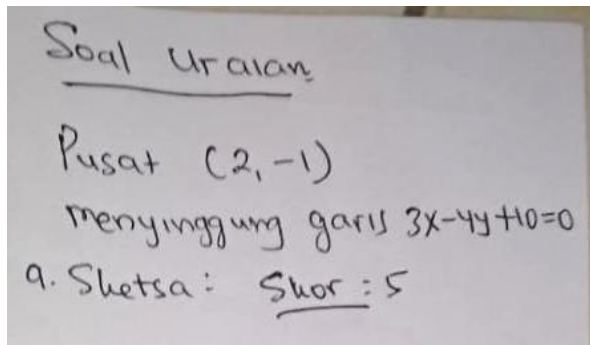 Soal Uraian
Pusat (2,-1)
menyinggung garis 3x-4y+10=0
a. Sketsa : Skor : 5